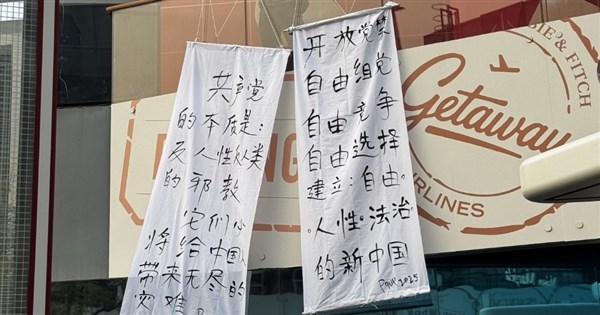 共产党
的本质是：
反人性、人类
的邪教
它们必
将给中国
带来无尽的
灾难
开放党禁
自由组党
自由竞争
自由选择
建立：自由。
。人性。法治
的新中国
2025
BIE & FITCH
Getaway
IRLINES
NG